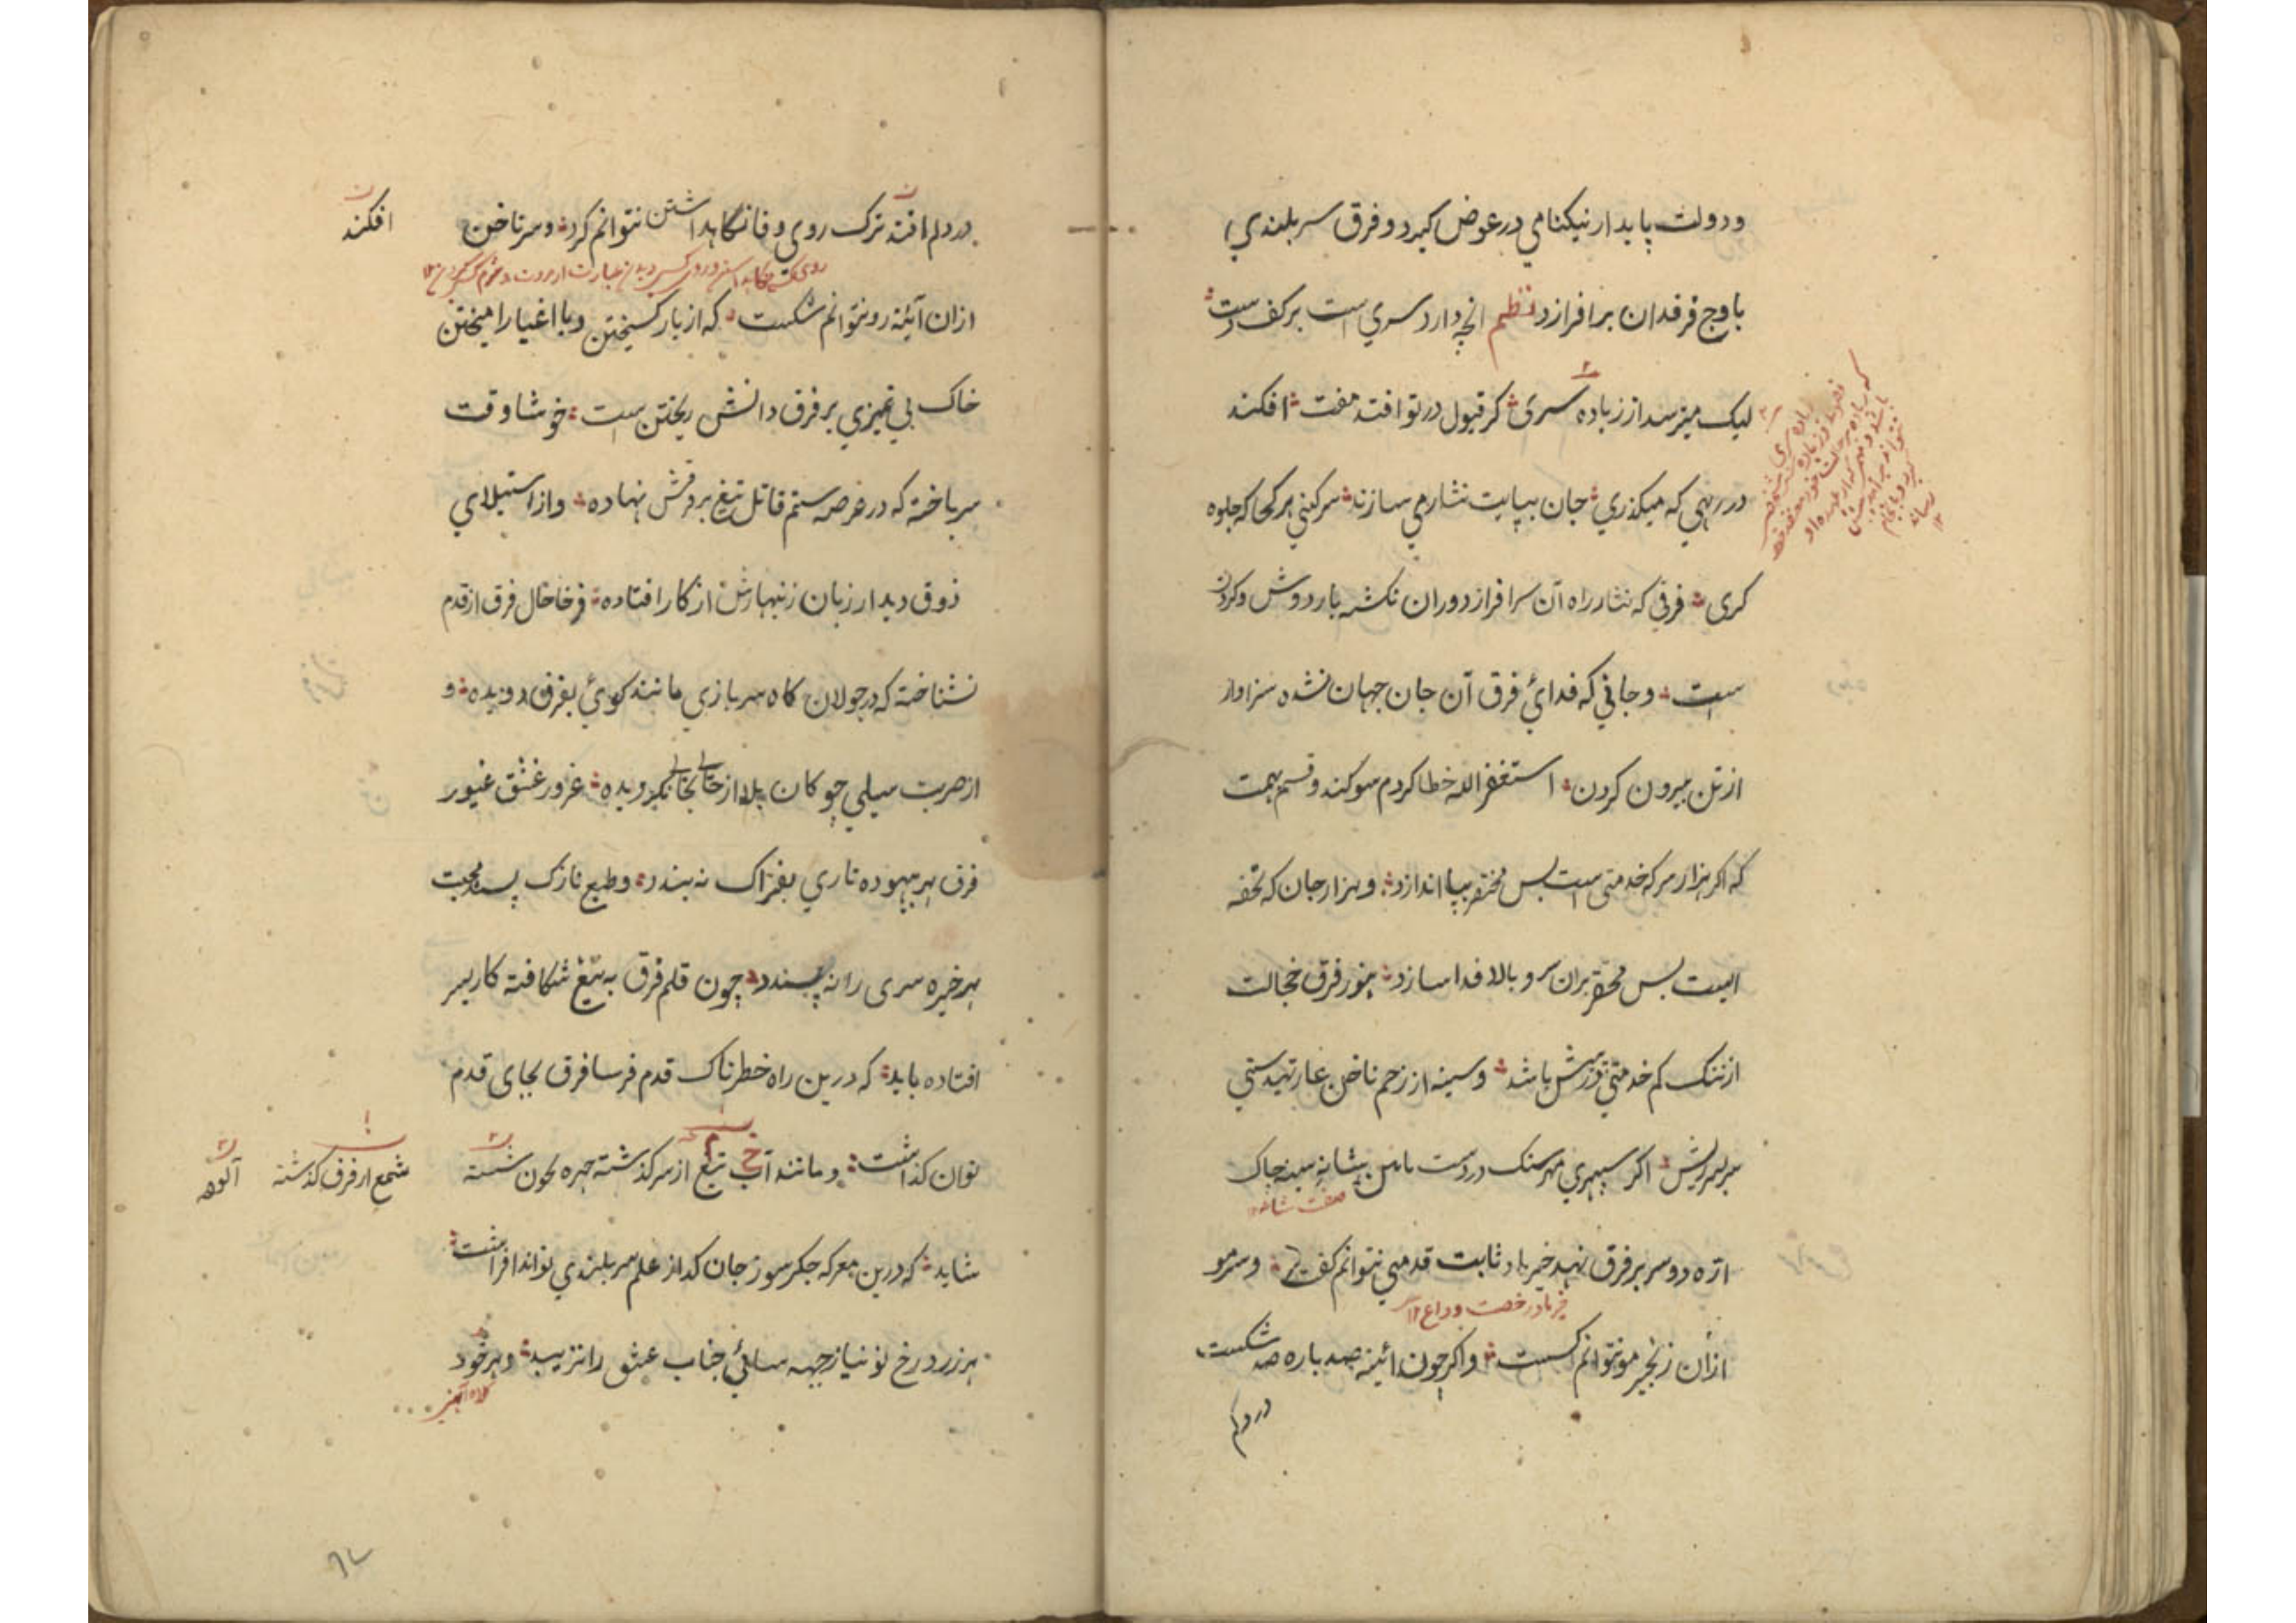 ودولت پایدار نیکنامي در عوض گیرد و فرق سر بلندي
باوج فرقدان بر افرازد نظم انچه دارد سري است بر کف دست
لیک میترسد از زیاده سری گر قبول در تو افتد مفت افکند
در رهي که میگذري جان بپایت نثار مي سازند سر کني هر کجا که جلوه
کری فرقي که نثار راه آن سرافراز دوران نگشته بار دوش و گردن
است وجاني که فدائ فرق آن جان جهان نشده سزاوار
از تن بیرون کردن استغفر الله خطا کردم سوکند و قسم بهمت
که اگر هزار سر که خدمتی است بس مختصر بپا اندازد و هزار جان که تحفه
ایست بس محقر بران سرو بالا فدا سازد هنوز فرق خجالت
از ننگ کم خدمتي در پیش باشد و سینه از زخم ناخن عار تهیدستي
سر بسر ریش اگر سپهري مهر سنگ در دست با من بشانه سینه چاک
صفت شانه
ارّه دو سر بر فرق نهد خیرباد ثابت قدمي نتوانم گفت و سر مو
خیرباد رخصت وداع ۱۲
ازان زنجیر مو نتوانم گسست و اگر چون ائینه صد باره صد شکست
در دلم
در دلم افتد ترک روي وفا نگاهداشتن نتوانم کرد و سر ناخن
افکند
ازان آئینه رو نتوانم شکست که از یار گسیختن و با اغیار امیختن
خاک بي تمیزي بر فرق دانش ریختن است خوشا وقت
سر باخته که در عرصه ستم قاتل تیغ بر فرقش نهاده و از استیلاي
ذوق دیدار زبان زنهارش از کار افتاده فرخا حال فرق از قدم
نشناخته که در جولان گاه سر بازي مانند گوئ بفرق دویده و
از ضربت سیلي چوگان بلا از جاي بجائي نگردیده غرور عشق غیور
فرق هر بیهوده تاري بفتراک نه بندد و طبع نازک پسند محبت
هر خیره سری را نه پسندد چون قلم فرق به تیغ شکافته کار بسر
افتاده باید که درین راه خطرناک قدم فرسا فرق بجای قدم
توان گذاشت و مانند آب تیغ از سر گذشته چهره بخون شسته
شمع از فرق گذشته
آلوده
شاید که درین معرکه جگر سوز جان گداز علم سر بلندي تواند افراشت
هر زرد رخ نو نیاز جبهه سائي جناب عشق را نزیبد و هر خود